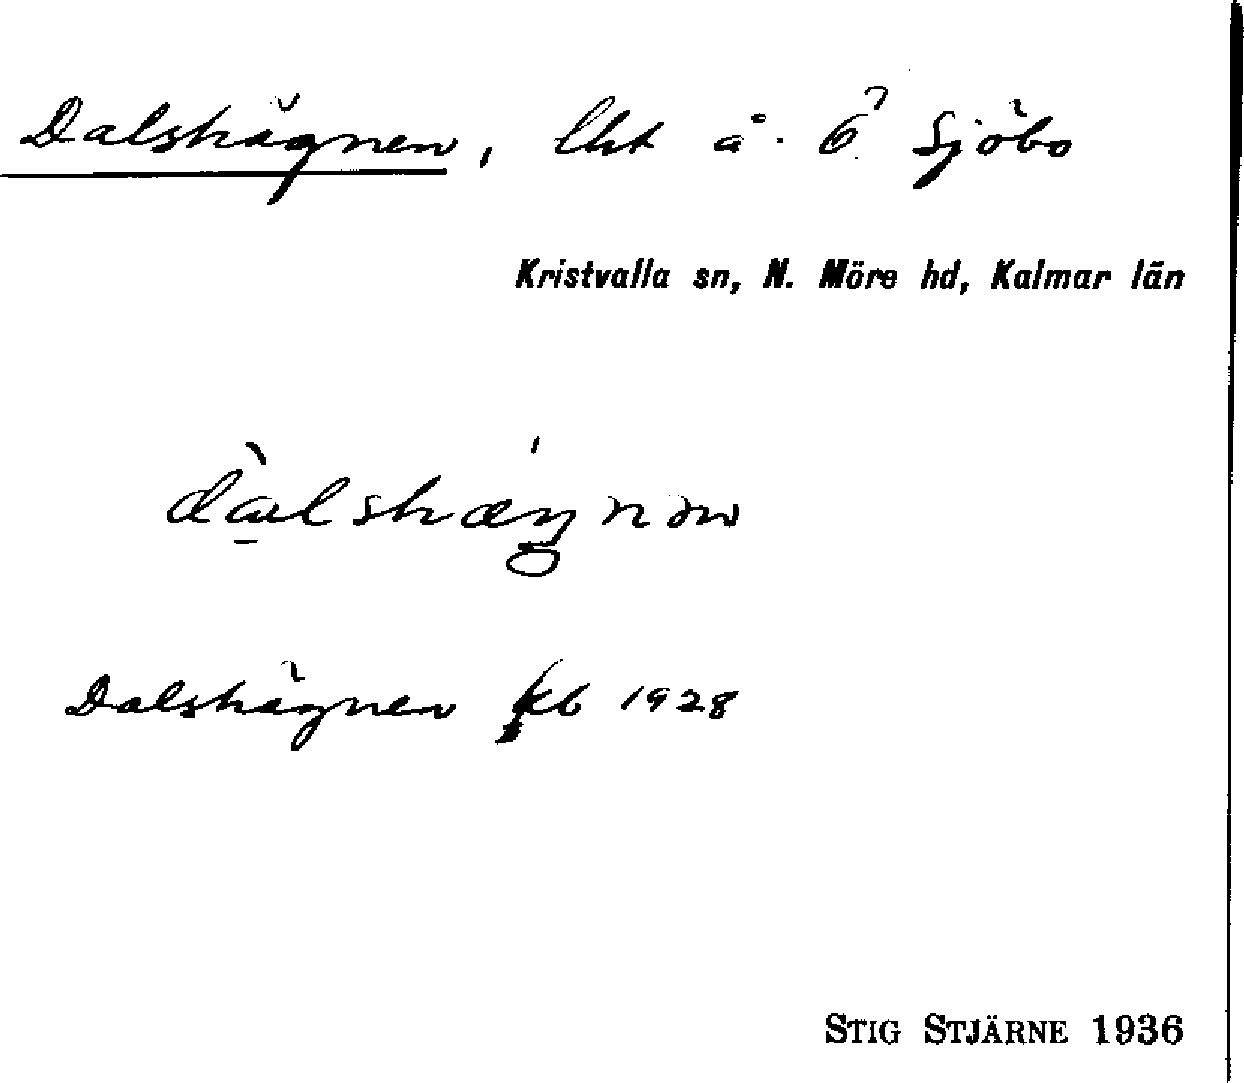 Dalshägnen, lht å. 6? Sjöbo
Kristvalla sn, N. Möre hd, Kalmar län
Dalshägnen kb 1928
STIG STJÄRNE 1936